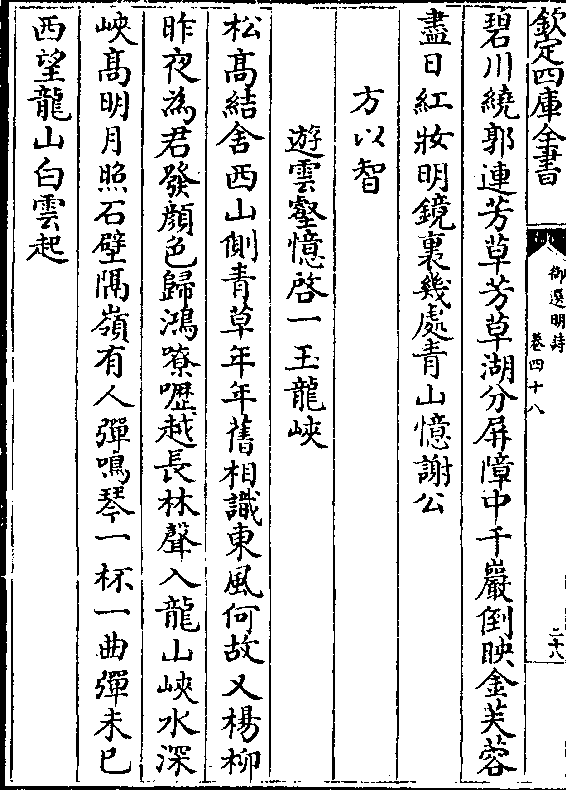 欽定四庫全書
御選明詩
卷四十八
二十八
碧川繞郭連芳草芳草湖分屏障中千巖倒映金芙蓉
盡日紅妝明鏡裏幾處青山憶謝公
方以智
遊雲壑憶啓一玉龍峽
松高結舍西山側青草年年舊相識東風何故又楊柳
昨夜為君發顔色歸鴻嘹嚦越長林聲入龍山峽水深
峽高明月照石壁隔嶺有人彈鳴琴一杯一曲彈未已
西望龍山白雲起